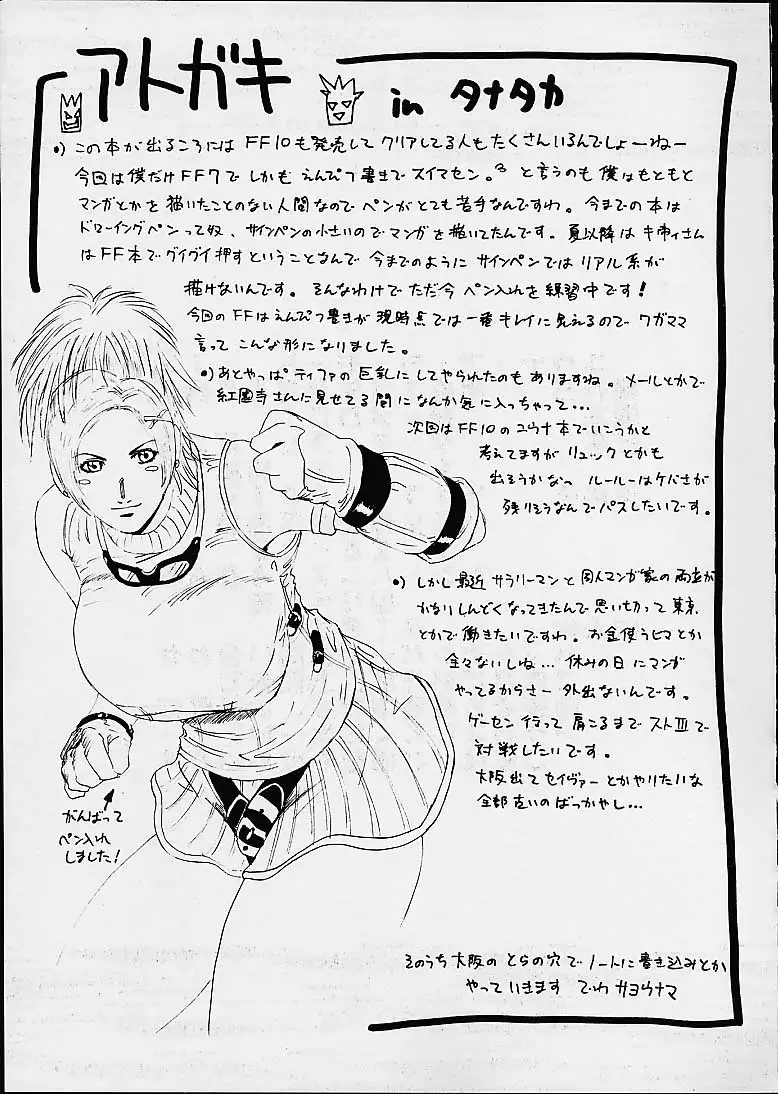 アトガキ
in タナタカ
•) この本が出るころには FF10も発売して クリアしてる人もたくさんいるんでしょーねー
今回は僕だけFF7でしかもえんぴつ書きでスイマセン。と言うのも僕はもともと
マンガとかを描いたことのない人間なのでペンがとても苦手なんですわ。今までの本は
ドローイングペンって奴、サインペンの小さいのでマンガを描いてたんです。夏以降は キ帝ィさん
はFF本でグイグイ押すということなんで 今までのように サインペンでは リアル系が
描けないんです。そんなわけで ただ今 ペン入れを練習中です!
今回のFFはえんぴつ書きが 現時点では一番キレイに見えるので ワガママ
言って こんな形になりました。
•) あとやっぱ ティファの巨乳にしてやられたのもありますね。メールとかで
紅國寺さんに見せてる間になんか気に入っちゃって…
次回はFF10のユウナ本でいこうかと
考えてますが リュックとかも
出そうかなっ ルールーはケバさが
残りそうなんでパスしたいです。
•) しかし最近 サラリーマンと同人マンガ家の両立が
かなりしんどくなってきたんで思い切って東京
とかで働きたいですわ。お金使うヒマとか
全々ないしね… 休みの日にマンガ
やってるからさー 外出ないんです。
ゲーセン行って肩こるまでストⅢで
対戦したいです。
大阪出てセイヴァーとかやりたいな
全部古いのばっかやし…
がんばって
ペン入れ
しました!
そのうち大阪のとらの穴でノートに書き込みとか
やっていきます でわ サヨウナマ